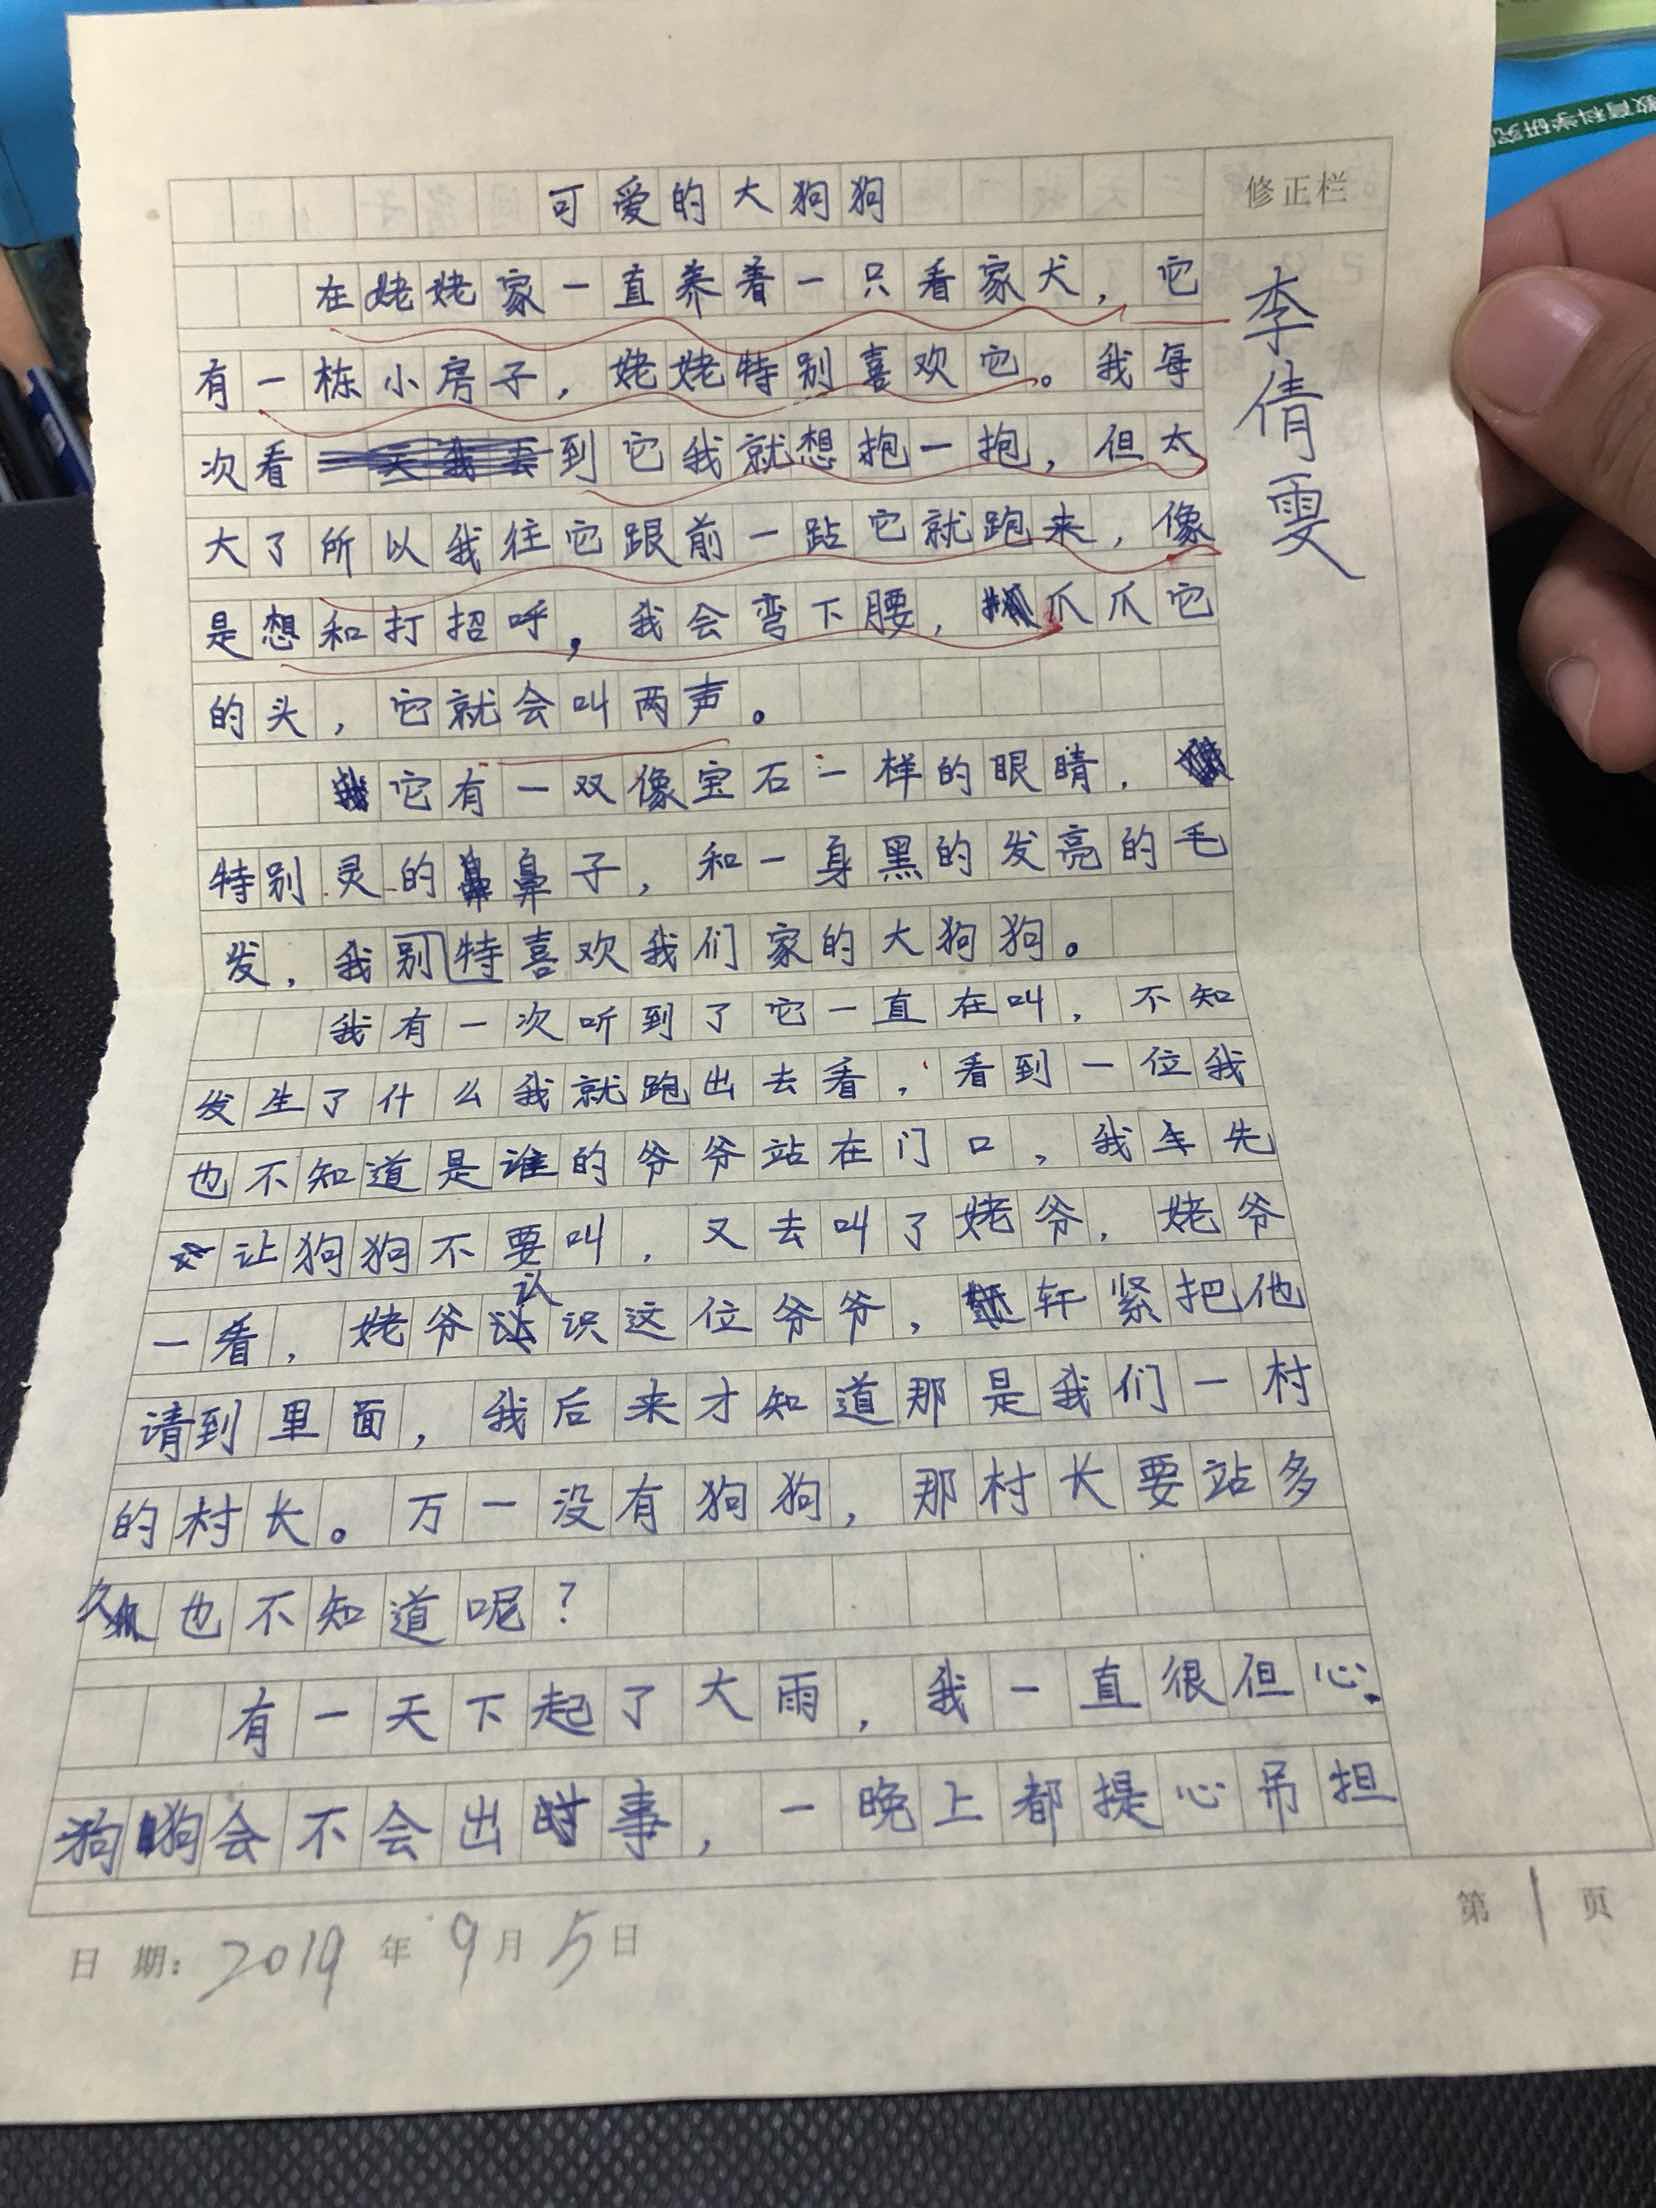 教育科学研究
可爱的大狗狗
修正栏
李倩雯
在姥姥家一直养着一只看家犬，它
有一栋小房子，姥姥特别喜欢它。我每
次看到它我就想抱一抱，但太
大了所以我往它跟前一跕它就跑来，像
是想和打招呼，我会弯下腰，爪爪它
的头，它就会叫两声。
它有一双像宝石一样的眼睛，
特别灵的鼻子，和一身黑的发亮的毛
发，我别特喜欢我们家的大狗狗。
我有一次听到了它一直在叫，不知
发生了什么我就跑出去看，看到一位我
也不知道是谁的爷爷站在门口，我先
让狗狗不要叫，又去叫了姥爷，姥爷
一看，姥爷认识这位爷爷，轩紧把他
请到里面，我后来才知道那是我们一村
的村长。万一没有狗狗，那村长要站多
久也不知道呢？
有一天下起了大雨，我一直很但心
狗狗会不会出事，一晚上都提心吊担
日期：2019年9月5日
第1页